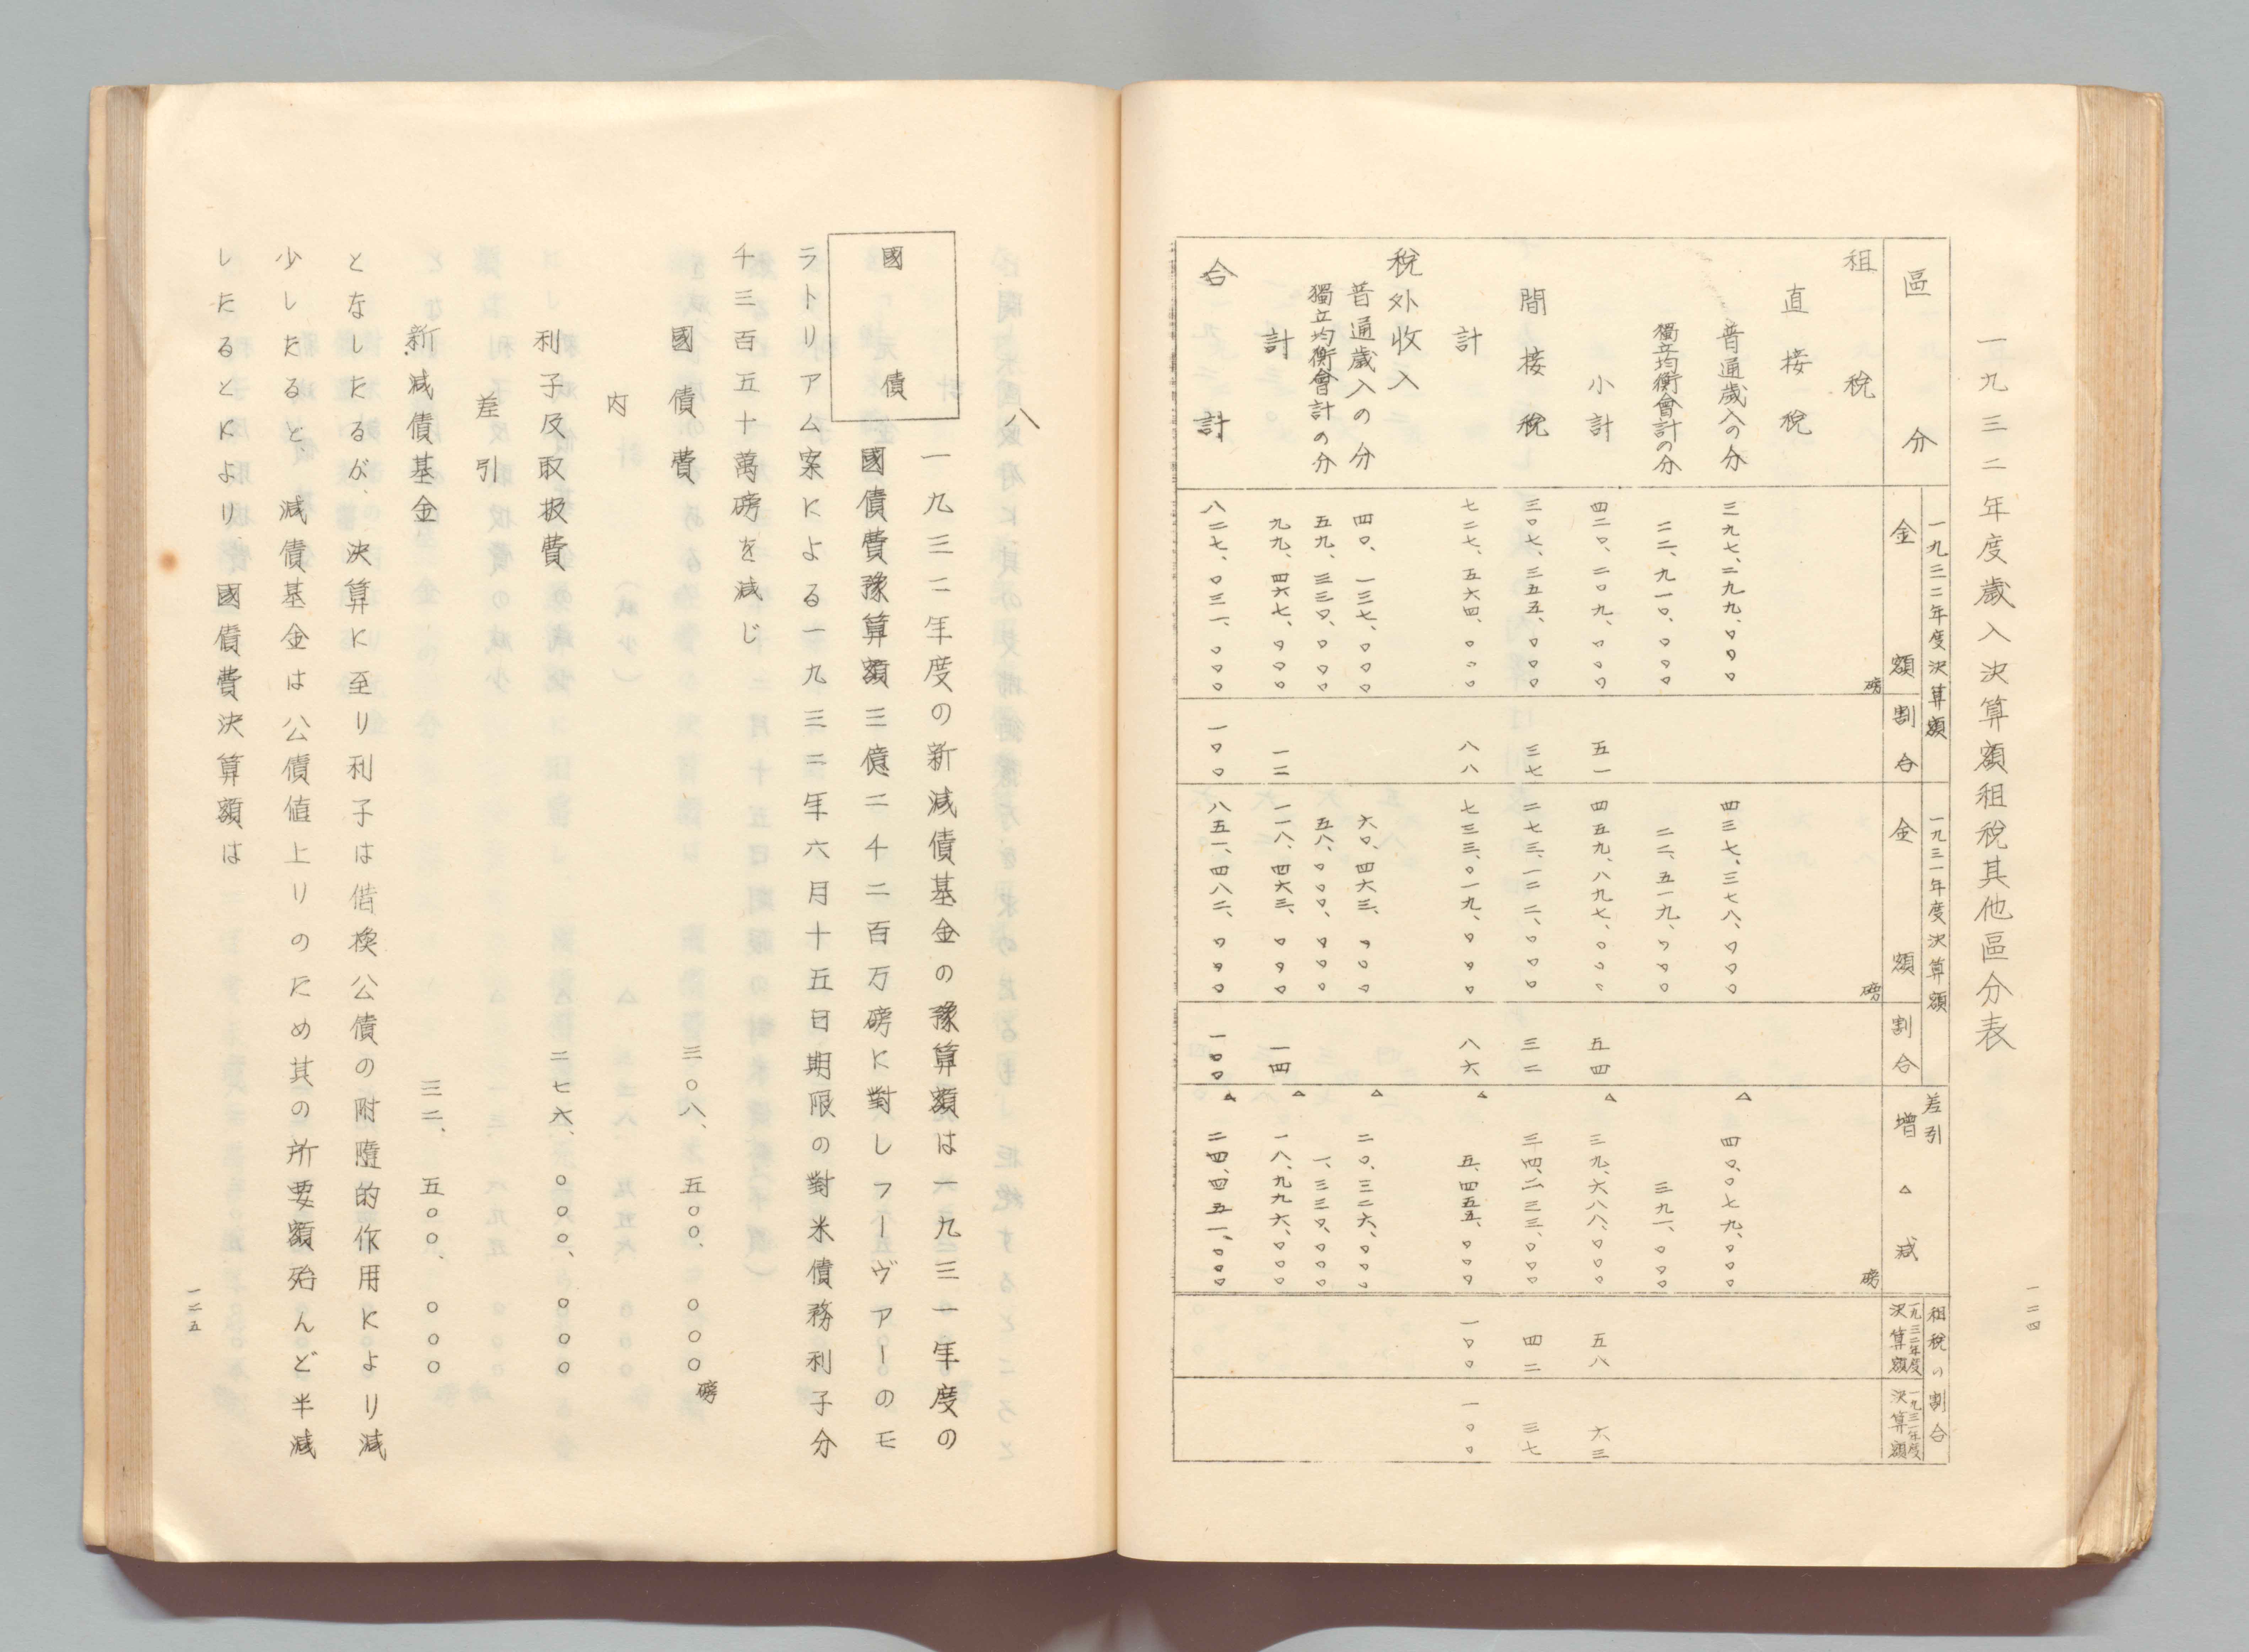 一九三二年度歳入決算額租税其他區分表
一二四
區分
一九三二年度決算額
金額
割合
一九三一年度決算額
金額
割合
差引
増△減
租税の割合
一九三二年度決算額
一九三一年度決算額
租税 磅 磅 磅
直接税
普通歳入の分 三九七、二九九、〇〇〇 四三七、三七八、〇〇〇 △ 四〇、〇七九、〇〇〇
獨立均衡會計の分 二二、九一〇、〇〇〇 二二、五一九、〇〇〇 三九一、〇〇〇
小計 四二〇、二〇九、〇〇〇 五一 四五九、八九七、〇〇〇 五四 △ 三九、六八八、〇〇〇 五八 六三
間接税 三〇七、三五五、〇〇〇 三七 二七三、一二二、〇〇〇 三二 三四、二三三、〇〇〇 四二 三七
計 七二七、五六四、〇〇〇 八八 七三三、〇一九、〇〇〇 八六 △ 五、四五五、〇〇〇 一〇〇 一〇〇
税外收入
普通歳入の分 四〇、一三七、〇〇〇 六〇、四六三、〇〇〇 △ 二〇、三二六、〇〇〇
獨立均衡會計の分 五九、三三〇、〇〇〇 五八、〇〇〇、〇〇〇 一、三三〇、〇〇〇
計 九九、四六七、〇〇〇 一二 一一八、四六三、〇〇〇 一四 △ 一八、九九六、〇〇〇
合計 八二七、〇三一、〇〇〇 一〇〇 八五一、四八二、〇〇〇 一〇〇 △ 二四、四五一、〇〇〇
八
國債
一九三二年度の新減債基金の豫算額は一九三一年度の
國債費豫算額三億二千二百万磅に對しフーヴァーのモ
ラトリアム案による一九三二年六月十五日期限の對米債務利子分
千三百五十萬磅を減じ
國債費 三〇八、五〇〇、〇〇〇磅
内
利子及取扱費 二七六、〇〇〇、〇〇〇
差引
新減債基金 三二、五〇〇、〇〇〇
となしたるが、決算に至り利子は借換公債の附隨的作用により減
少したると、減債基金は公債値上りのため其の所要額殆んど半減
したるとにより國債費決算額は
一二五